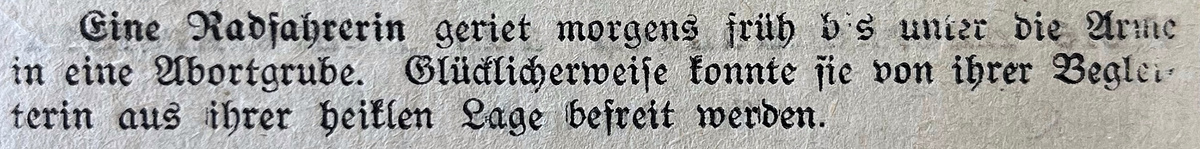 Eine Radfahrerin geriet morgens früh bis unter die Arme
in eine Abortgrube. Glücklicherweise konnte sie von ihrer Beglei-
terin aus ihrer heiklen Lage befreit werden.